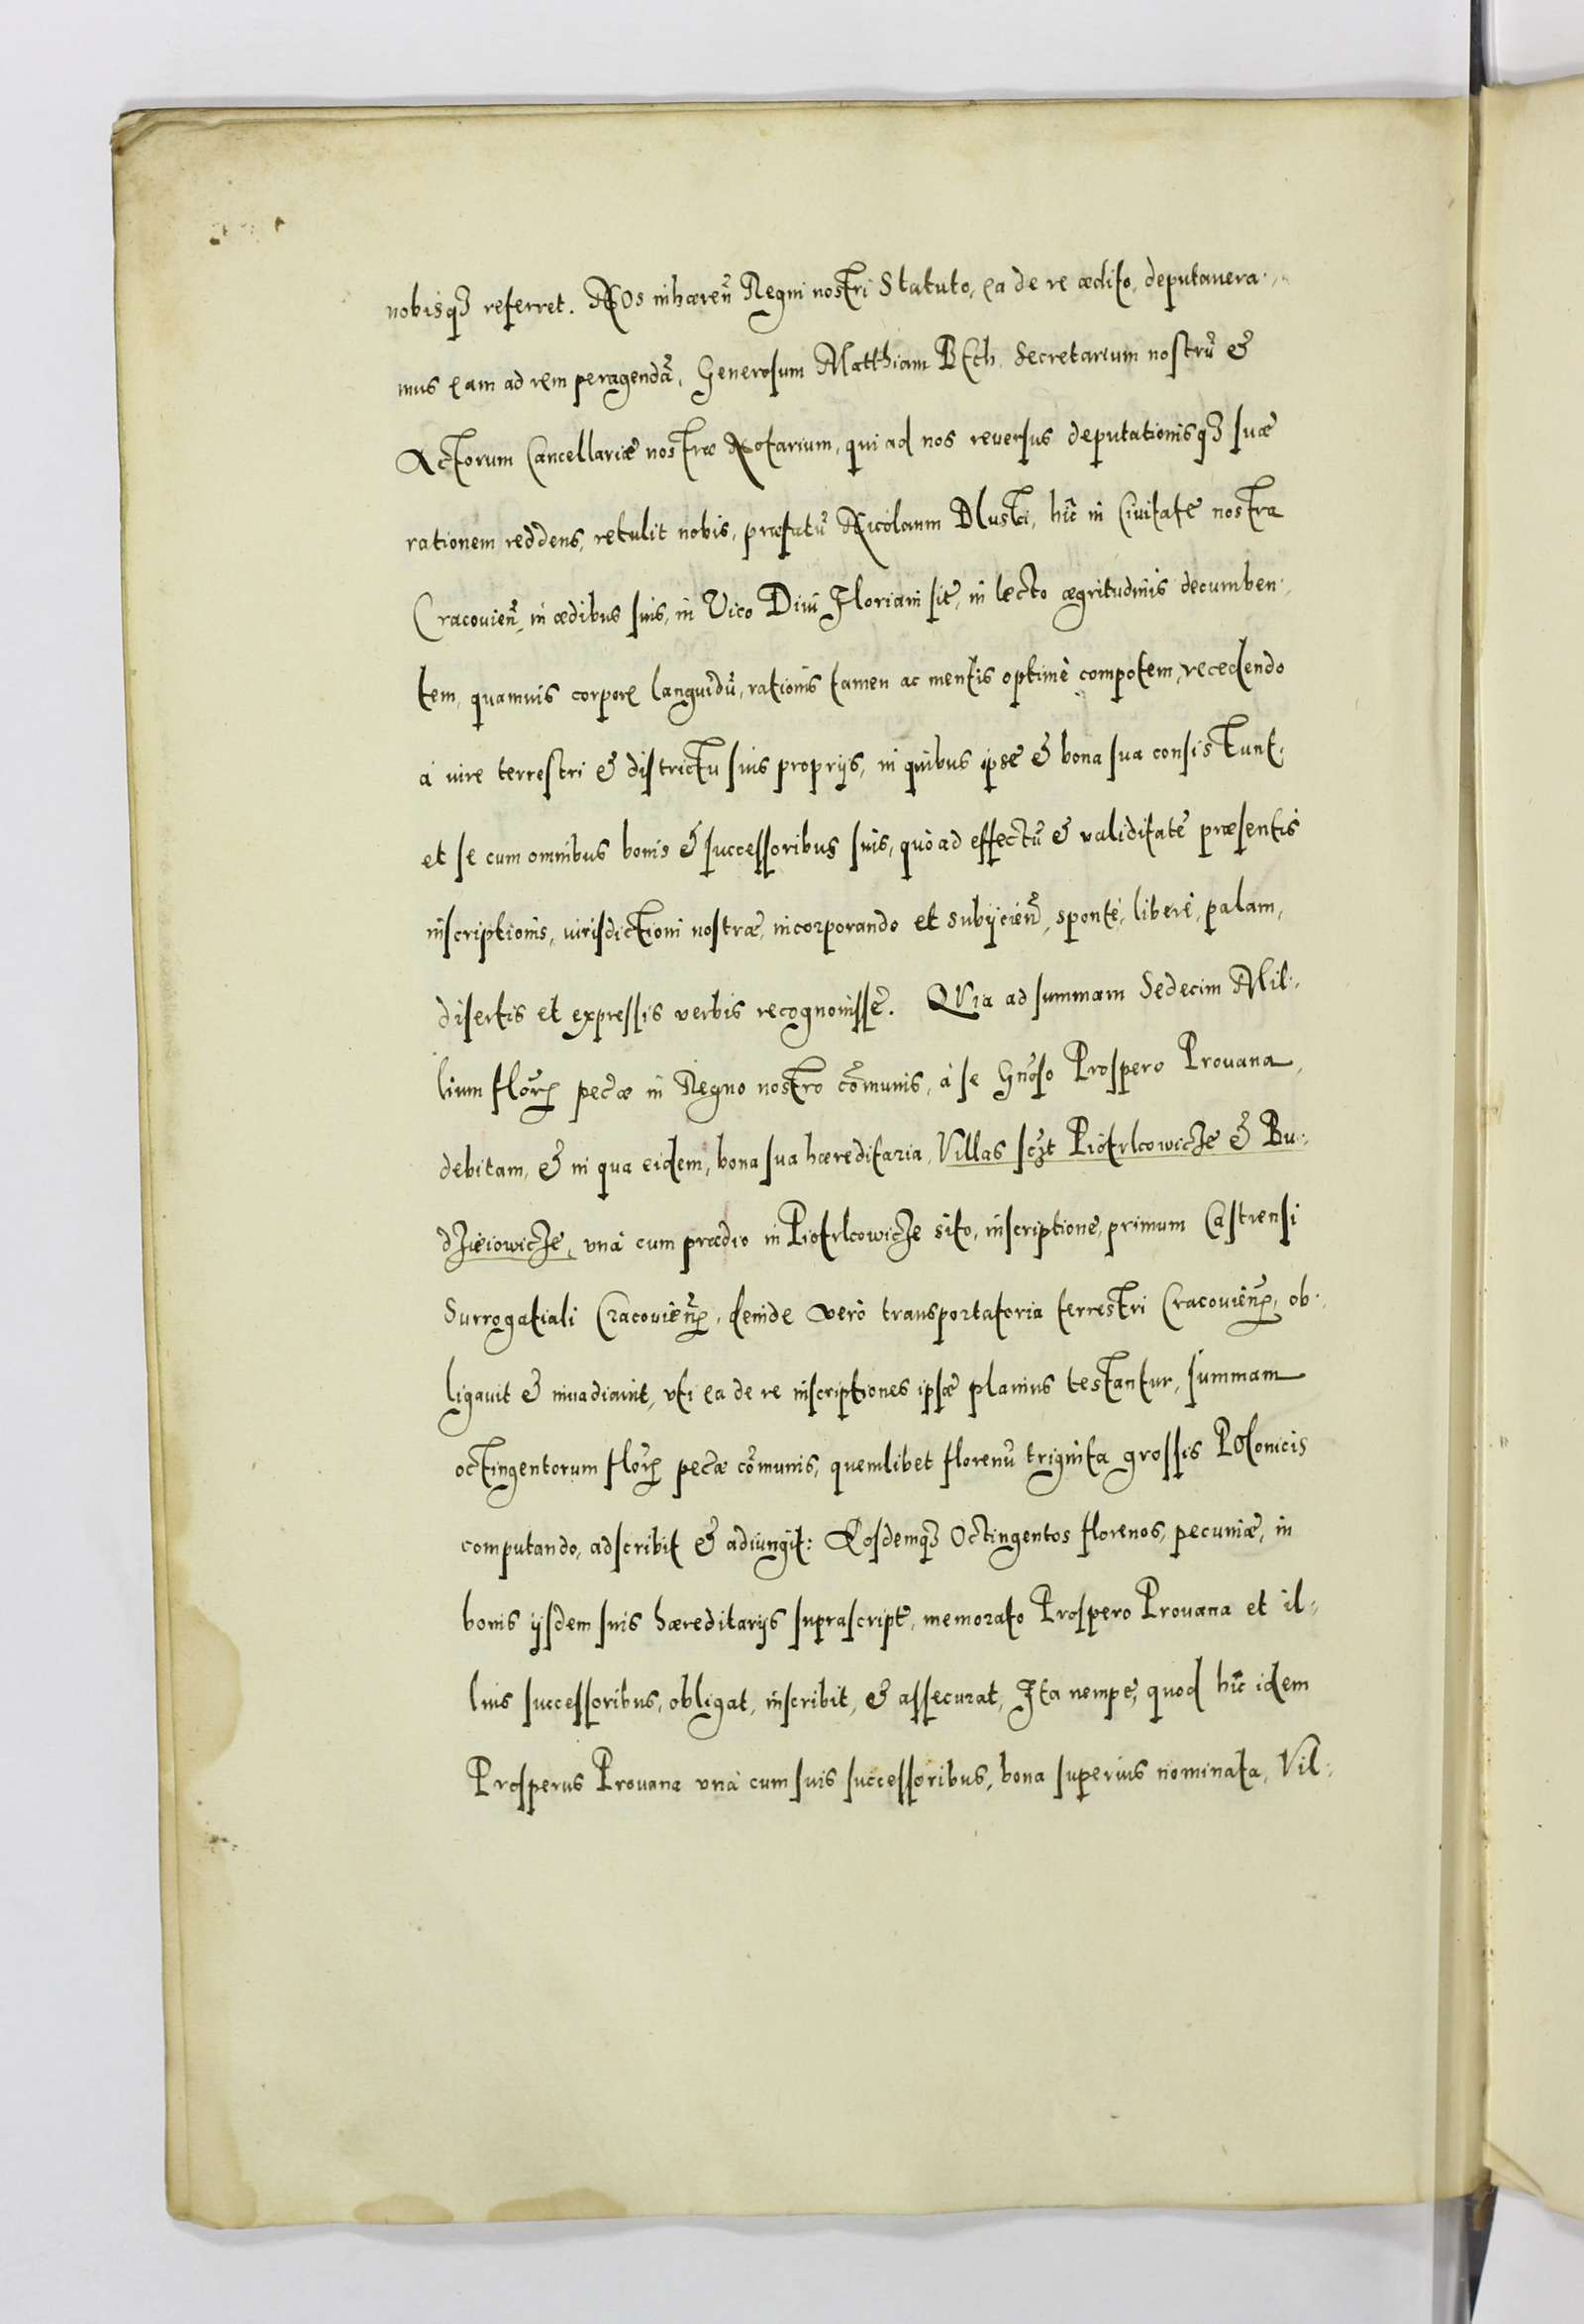 nobisq₃ referret. NOs inhæren̄ Regni nostri Statuto, ea de re ædito, deputauera-
mus eam ad rem peragendā, Generosum Matthiam BEch Secretarium nostrū &
Actorum Cancellariæ nostræ Notarium, qui ad nos reuersus deputationisq₃ suæ
rationem reddens, retulit nobis, præfatū Nicolaum Dluski, hic in Ciuitate nostra
Cracouien̄, in ædibus suis, in Vico Diui Floriani sit̄, in lecto ægritudinis decumben-
tem, quamuis corpore languidū, rationis tamen ac mentis optimè compotem, recedendo
à iure terrestri & districtu suis proprijs, in quibus ipse & bona sua consistunt,
et se cum omnibus bonis & successoribus suis, quò ad effectū & validitatē præsentis
inscriptionis, iurisdictioni nostræ, incorporando et subijcien̄, spontè, liberè, palam,
disertis et expressis verbis recognouisse. QVia ad summam Sedecim Mil-
lium flor̄ pec̄æ in Regno nostro cōmunis, à se Gn̄oso Prospero Prouana,
debitam, & in qua eidem, bona sua hæreditaria, Villas sc₃t Piotrkowicze & Bu-
dzieiowicze, vnà cum prædio in Piotrkowicze sito, inscriptione, primum Castrensi
Surrogatiali Cracouien̄, deinde verò transportatoria terrestri Cracouien̄, ob-
ligauit & inuadiauit, vti ea de re inscriptiones ipsæ planius testantur, summam
octingentorum flor̄ pec̄æ cōmunis, quemlibet florenū triginta grossis POlonicis
computando, adscribit & adiungit: Eosdemq₃ Octingentos florenos, pecuniæ, in
bonis ijsdem suis hæreditarijs suprascript̄, memorato Prospero Prouana et il-
lius successoribus, obligat, inscribit, & assecurat, Ita nempe, quod hic idem
Prosperus Prouana vnà cum suis successoribus, bona superius nominata, Vil-